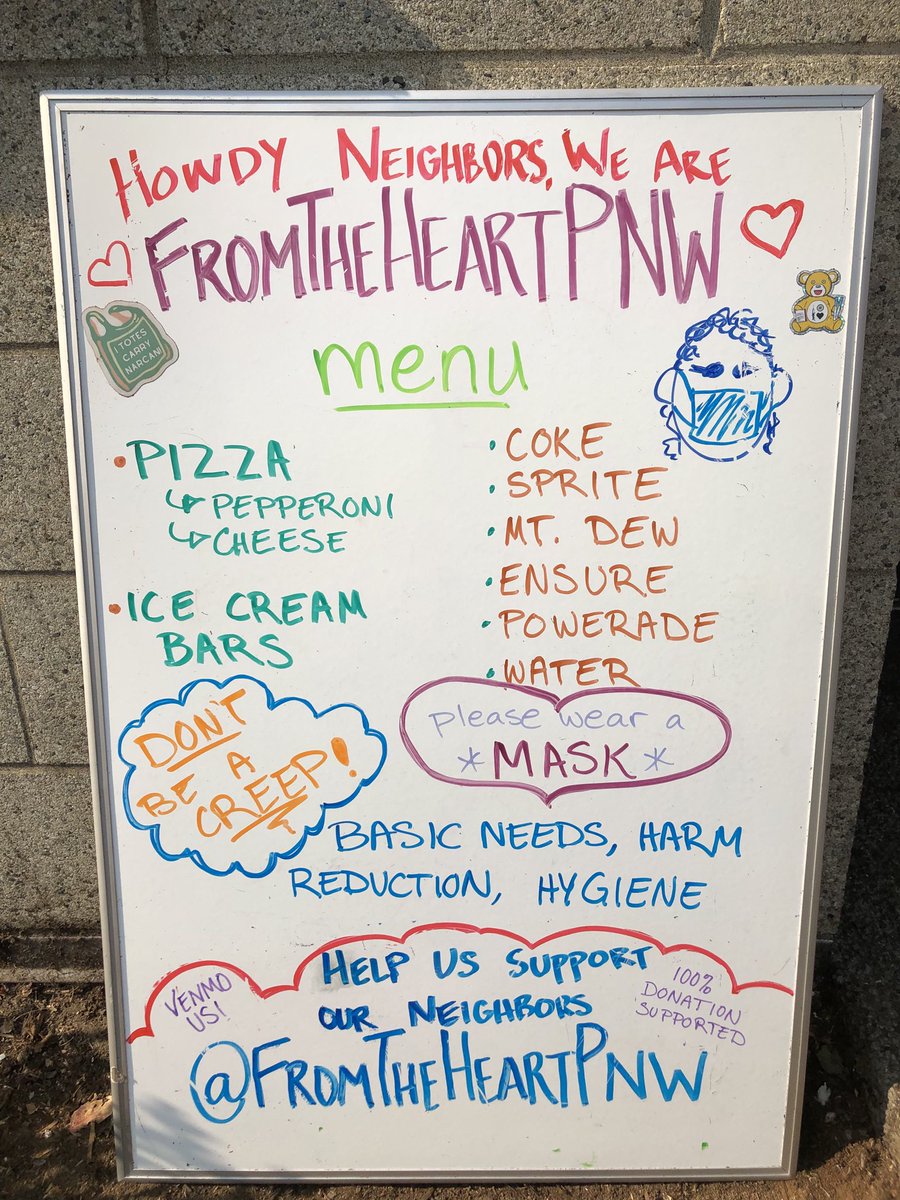 HOWDY NEIGHBORS, WE ARE
FROMTHEHEARTPNW
I TOTES
CARRY
NARCAN
menu
• PIZZA
↳ PEPPERONI
↳ CHEESE
• ICE CREAM
BARS
• COKE
• SPRITE
• MT. DEW
• ENSURE
• POWERADE
• WATER
DON'T
BE A
CREEP!
please wear a
*MASK*
BASIC NEEDS, HARM
REDUCTION, HYGIENE
VENMO
US!
HELP US SUPPORT
OUR NEIGHBORS
100%
DONATION
SUPPORTED
@FROMTHEHEARTPNW